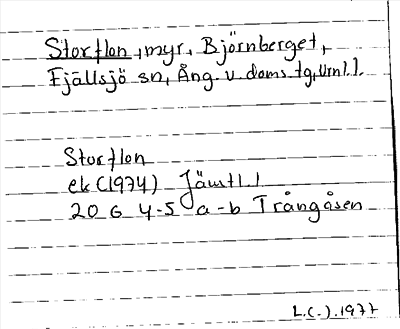 Storflon, myr, Björnberget,
Fjällsjö sn, Ång. v. doms. tg, Vrnl. l.
Storflon
ek (1974) Jämtl. l
20 G 4-5 a-b Trångåsen
L.(-).1977